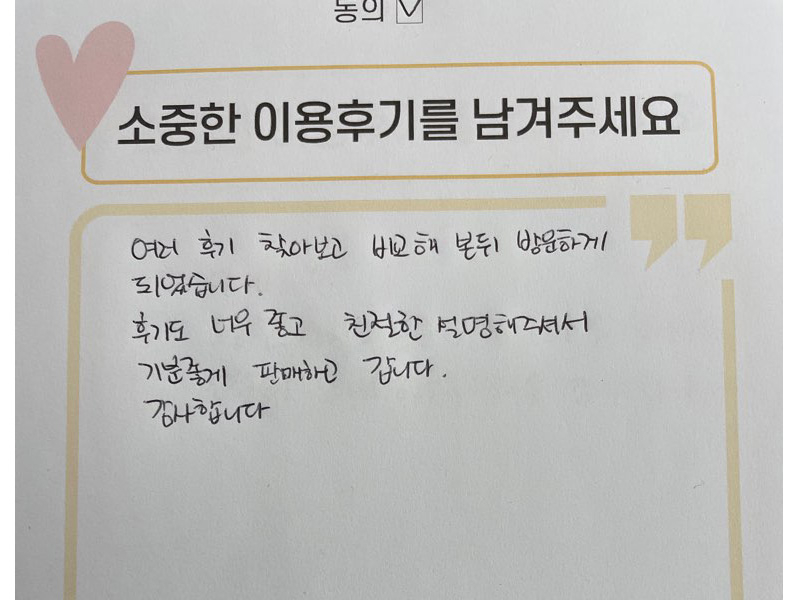 동의 ☑
소중한 이용후기를 남겨주세요
여러 후기 찾아보고 비교해 본뒤 방문하게
되었습니다.
후기도 너무 좋고 친절한 설명해주셔서
기분좋게 판매하고 갑니다.
감사합니다